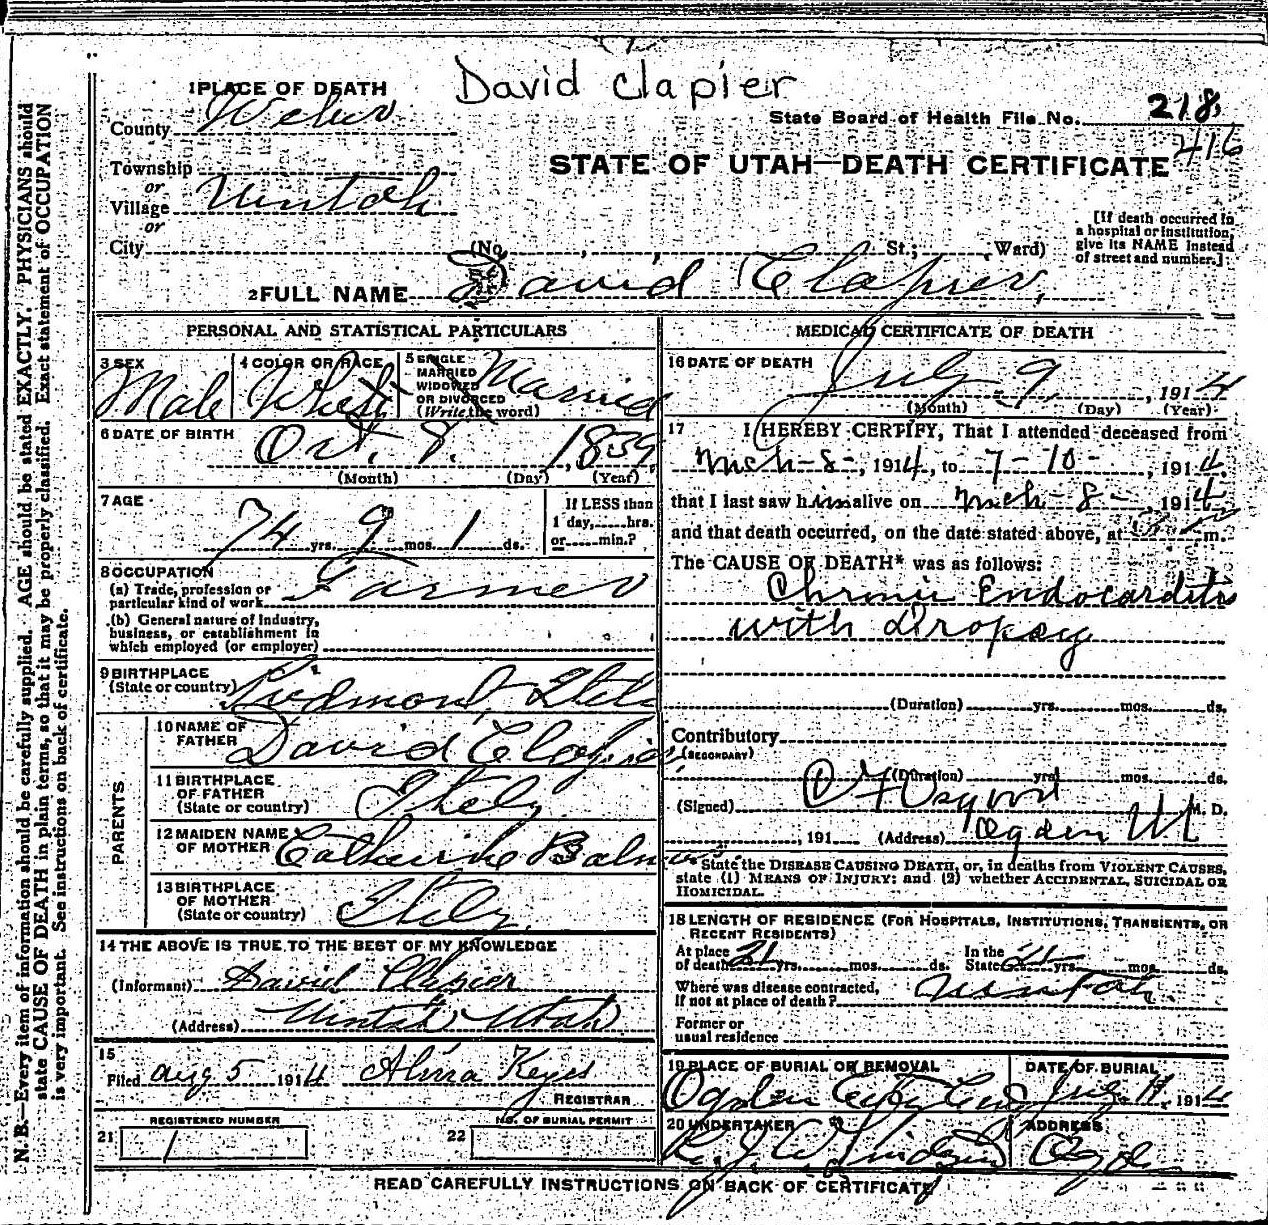 David Clapier
1 PLACE OF DEATH
County Weber
State Board of Health File No. 218
416
Township
or
Village Uintah
or
City
STATE OF UTAH—DEATH CERTIFICATE
(No. , St.; Ward)
[If death occurred in
a hospital or institution,
give its NAME instead
of street and number.]
2 FULL NAME David Clapier,
PERSONAL AND STATISTICAL PARTICULARS
3 SEX Male
4 COLOR OR RACE White
5 SINGLE
MARRIED
WIDOWED
OR DIVORCED
(Write the word)
Married
6 DATE OF BIRTH
Oct. 8. , 1839
(Month) (Day) (Year)
7 AGE
74 yrs. 9 mos. 1 ds.
If LESS than
1 day, hrs.
or min.?
8 OCCUPATION
(a) Trade, profession or
particular kind of work Farmer
(b) General nature of industry,
business, or establishment in
which employed (or employer)
9 BIRTHPLACE
(State or country) Piedmont, Itely
PARENTS
10 NAME OF
FATHER David Clapier
11 BIRTHPLACE
OF FATHER
(State or country) Itely
12 MAIDEN NAME
OF MOTHER Catherine
13 BIRTHPLACE
OF MOTHER
(State or country) Itely.
14 THE ABOVE IS TRUE TO THE BEST OF MY KNOWLEDGE
(Informant) David Clapier
(Address) Uintah Utah
15
Filed Aug 5 1914 Alma Keyes
REGISTRAR
REGISTERED NUMBER
21 1
NO. OF BURIAL PERMIT
22
MEDICAL CERTIFICATE OF DEATH
16 DATE OF DEATH
July 9 , 1914
(Month) (Day) (Year)
17 I HEREBY CERTIFY, That I attended deceased from
Mch-8-, 1914, to 7-10-, 1914
that I last saw him alive on Mch-8-, 1914
and that death occurred, on the date stated above, at m.
The CAUSE OF DEATH* was as follows:
Chronic Endocarditis
with Dropsy
(Duration) yrs. mos. ds.
Contributory
(SECONDARY)
(Duration) yrs. mos. ds.
(Signed) Osgood M. D.
, 191 (Address) Ogden Ut
*State the DISEASE CAUSING DEATH, or, in deaths from VIOLENT CAUSES,
state (1) MEANS OF INJURY; and (2) whether ACCIDENTAL, SUICIDAL OR
HOMICIDAL.
18 LENGTH OF RESIDENCE (FOR HOSPITALS, INSTITUTIONS, TRANSIENTS, OR
RECENT RESIDENTS)
At place
of death 21 yrs. mos. ds.
In the
State yrs. mos. ds.
Where was disease contracted,
if not at place of death? Uintah.
Former or
usual residence
19 PLACE OF BURIAL OR REMOVAL
Ogden City Cem
DATE OF BURIAL
July 11, 1914
20 UNDERTAKER
ADDRESS
Ogden
READ CAREFULLY INSTRUCTIONS ON BACK OF CERTIFICATE
N. B.—Every item of information should be carefully supplied. AGE should be stated EXACTLY. PHYSICIANS should
state CAUSE OF DEATH in plain terms, so that it may be properly classified. Exact statement of OCCUPATION
is very important. See instructions on back of certificate.